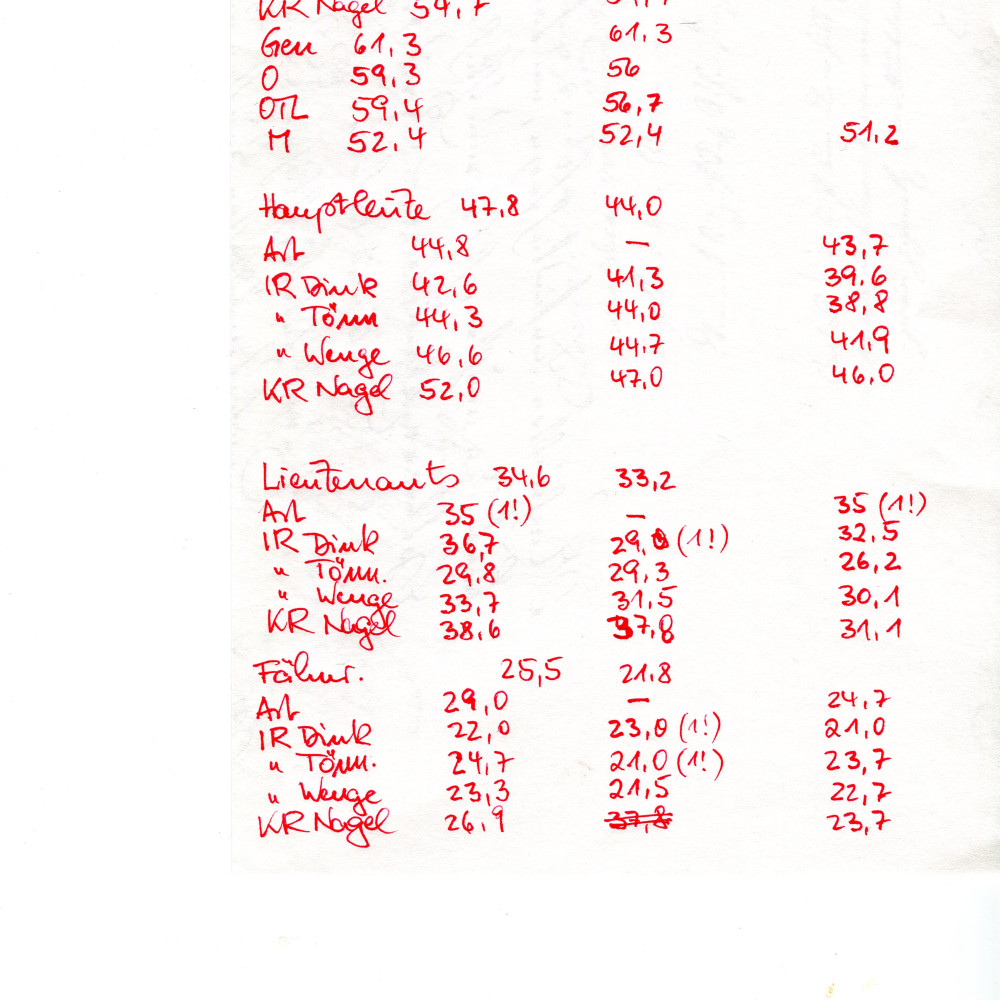 KR Nagel 54,7
Gen 61,3 61,3
O 59,3 56
OTL 59,4 56,7
M 52,4 52,4 51,2
Hauptleute 47,8 44,0
Art 44,8 — 43,7
IR Dink 42,6 41,3 39.6
" Tönn 44,3 44,0 38,8
" Wenge 46,6 44,7 41,9
KR Nagel 52,0 47,0 46,0
Lieutenants 34,6 33,2
Art 35 (1!) — 35 (1!)
IR Dink 36,7 29,0 (1!) 32,5
" Tönn. 29,8 29,3 26,2
" Wenge 33,7 31,5 30,1
KR Nagel 38,6 37,8 31,1
Fähnr. 25,5 21,8
Art 29,0 — 24,7
IR Dink 22,0 23,0 (1!) 21,0
" Tönn. 24,7 21,0 (1!) 23,7
" Wenge 23,3 21,5 22,7
KR Nagel 26,9 37,8 23,7